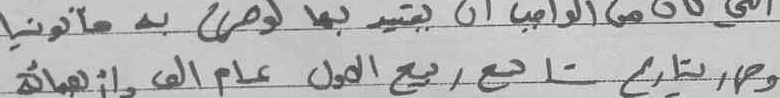 التي كان من الواجب ان يقيد بها لوصرح به قانونيا
وحرر بتاريخ تاسع ربيع الاول عام الف واربعمائة